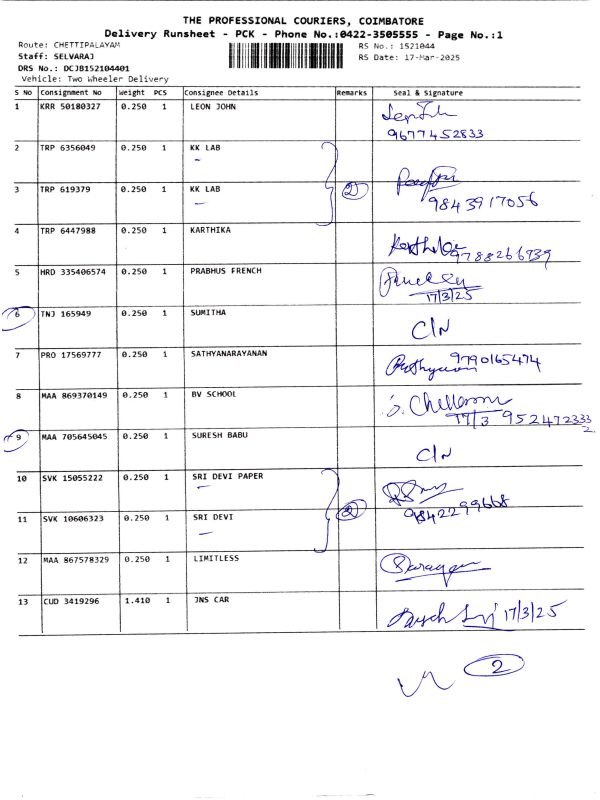 THE PROFESSIONAL COURIERS, COIMBATORE
Delivery Runsheet - PCK - Phone No.:0422-3505555 - Page No.:1
Route: CHETTIPALAYAM
RS No.: 1521044
Staff: SELVARAJ
RS Date: 17-Mar-2025
DRS No.: DCJB152104401
Vehicle: Two Wheeler Delivery
S No Consignment No Weight PCS Consignee Details Remarks Seal & Signature
1 KRR 50180327 0.250 1 LEON JOHN
9677452833
2 TRP 6356049 0.250 1 KK LAB
3 TRP 619379 0.250 1 KK LAB 2
9843917056
4 TRP 6447988 0.250 1 KARTHIKA
9788266939
5 HRD 335406574 0.250 1 PRABHUS FRENCH
17/3/25
6 TNJ 165949 0.250 1 SUMITHA C/N
7 PRO 17569777 0.250 1 SATHYANARAYANAN 9790165474
8 MAA 869370149 0.250 1 BV SCHOOL
17/3 9524723332
9 MAA 705645045 0.250 1 SURESH BABU C/N
10 SVK 15055222 0.250 1 SRI DEVI PAPER
2 9842299668
11 SVK 10606323 0.250 1 SRI DEVI
12 MAA 867578329 0.250 1 LIMITLESS
13 CUD 3419296 1.410 1 JNS CAR 17/3/25
2